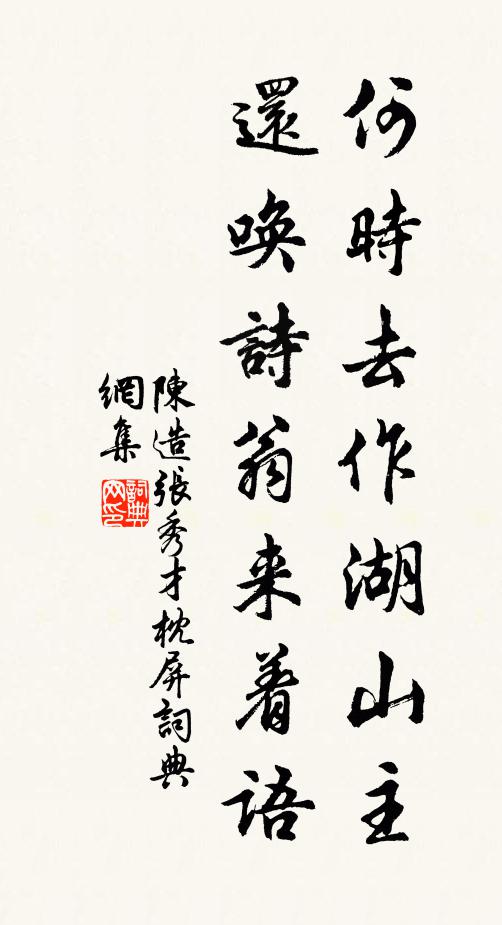 何時去作湖山主
還唤詩翁来着語
陳造張秀才枕屏詞典
網集
詞典
网印